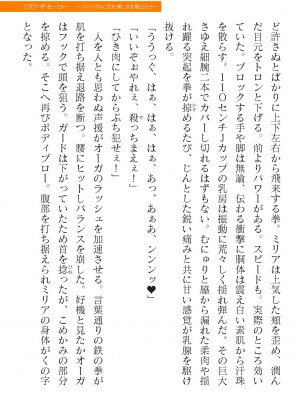 ミリア・ザ・ヒーロー ～コロシアムに淫を愉しむ牝戦士たち～
ど許さぬとばかりに上下左右から飛来する拳。ミリアは上気した頬を歪め、潤ん
だ目元をトロンと下げる。前よりパワーがある。スピードも。実際のところ効い
ていた。ブロックする手や脚は無論、伝わる衝撃に胴体は震え白い素肌から汗珠
を散らす。１１０センチＪカップの乳房は振動に荒々しく揺れ弾んだ。その巨大
さゆえ細腕二本でカバーし切れるはずもない。むにゅりと脇から漏れた柔肉や揺
れ躍る突起を拳が掠めるたび、じんとした鋭い痛みと共に甘い感覚が乳腺を駆け
抜ける。
「ううっぐ、はぁ、はぁ、はぁ、あっ、あぁあ、ンンンッ♥」
「いいぞぉやれぇ、殺っちまえぇ！」
「ひき肉にしてからぶち犯せぇ！」
　人をも人とも思わぬ声援がオーガのラッシュを加速させる。言葉通りの鉄の拳が
肌を打ち据え抉って刺激。腰にヒットしバランスを崩した。好機と見たかオーガ
はフックで頭を狙う。ガードは下がっていたため首を捻ったが、こめかみの部分
を掠める。そこへ再びボディブロー。腹部を打ち据えられミリアの身体がくの字
となった。